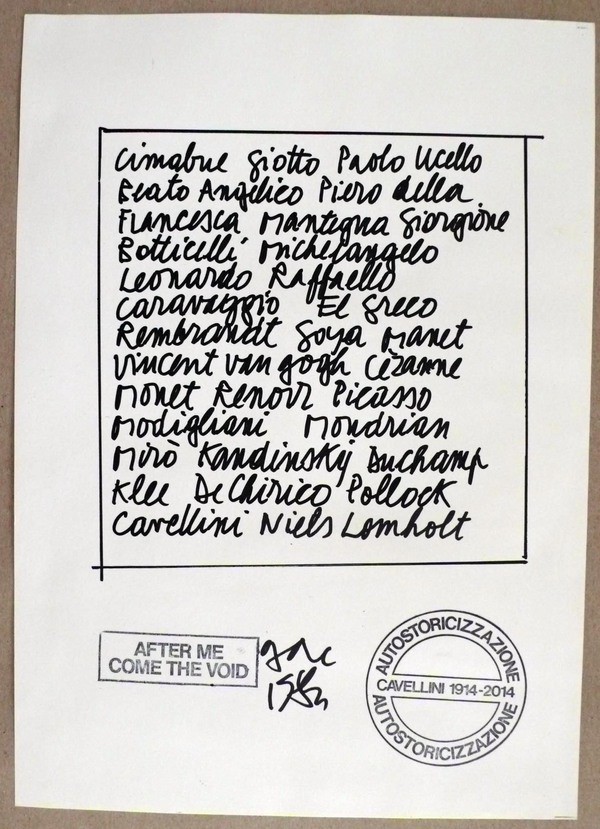 Cimabue Giotto Paolo Ucello
Beato Angelico Piero della
Francesca Mantegna Giorgione
Botticelli Michelangelo
Leonardo Raffaello
Caravaggio El Greco
Rembrandt Goya Manet
Vincent van gogh Cézanne
Monet Renoir Picasso
Modigliani Mondrian
Mirò Kandinskij Duchamp
Klee De Chirico Pollock
Cavellini Niels Lomholt
AFTER ME
COME THE VOID
AUTOSTORICIZZAZIONE
CAVELLINI 1914-2014
AUTOSTORICIZZAZIONE